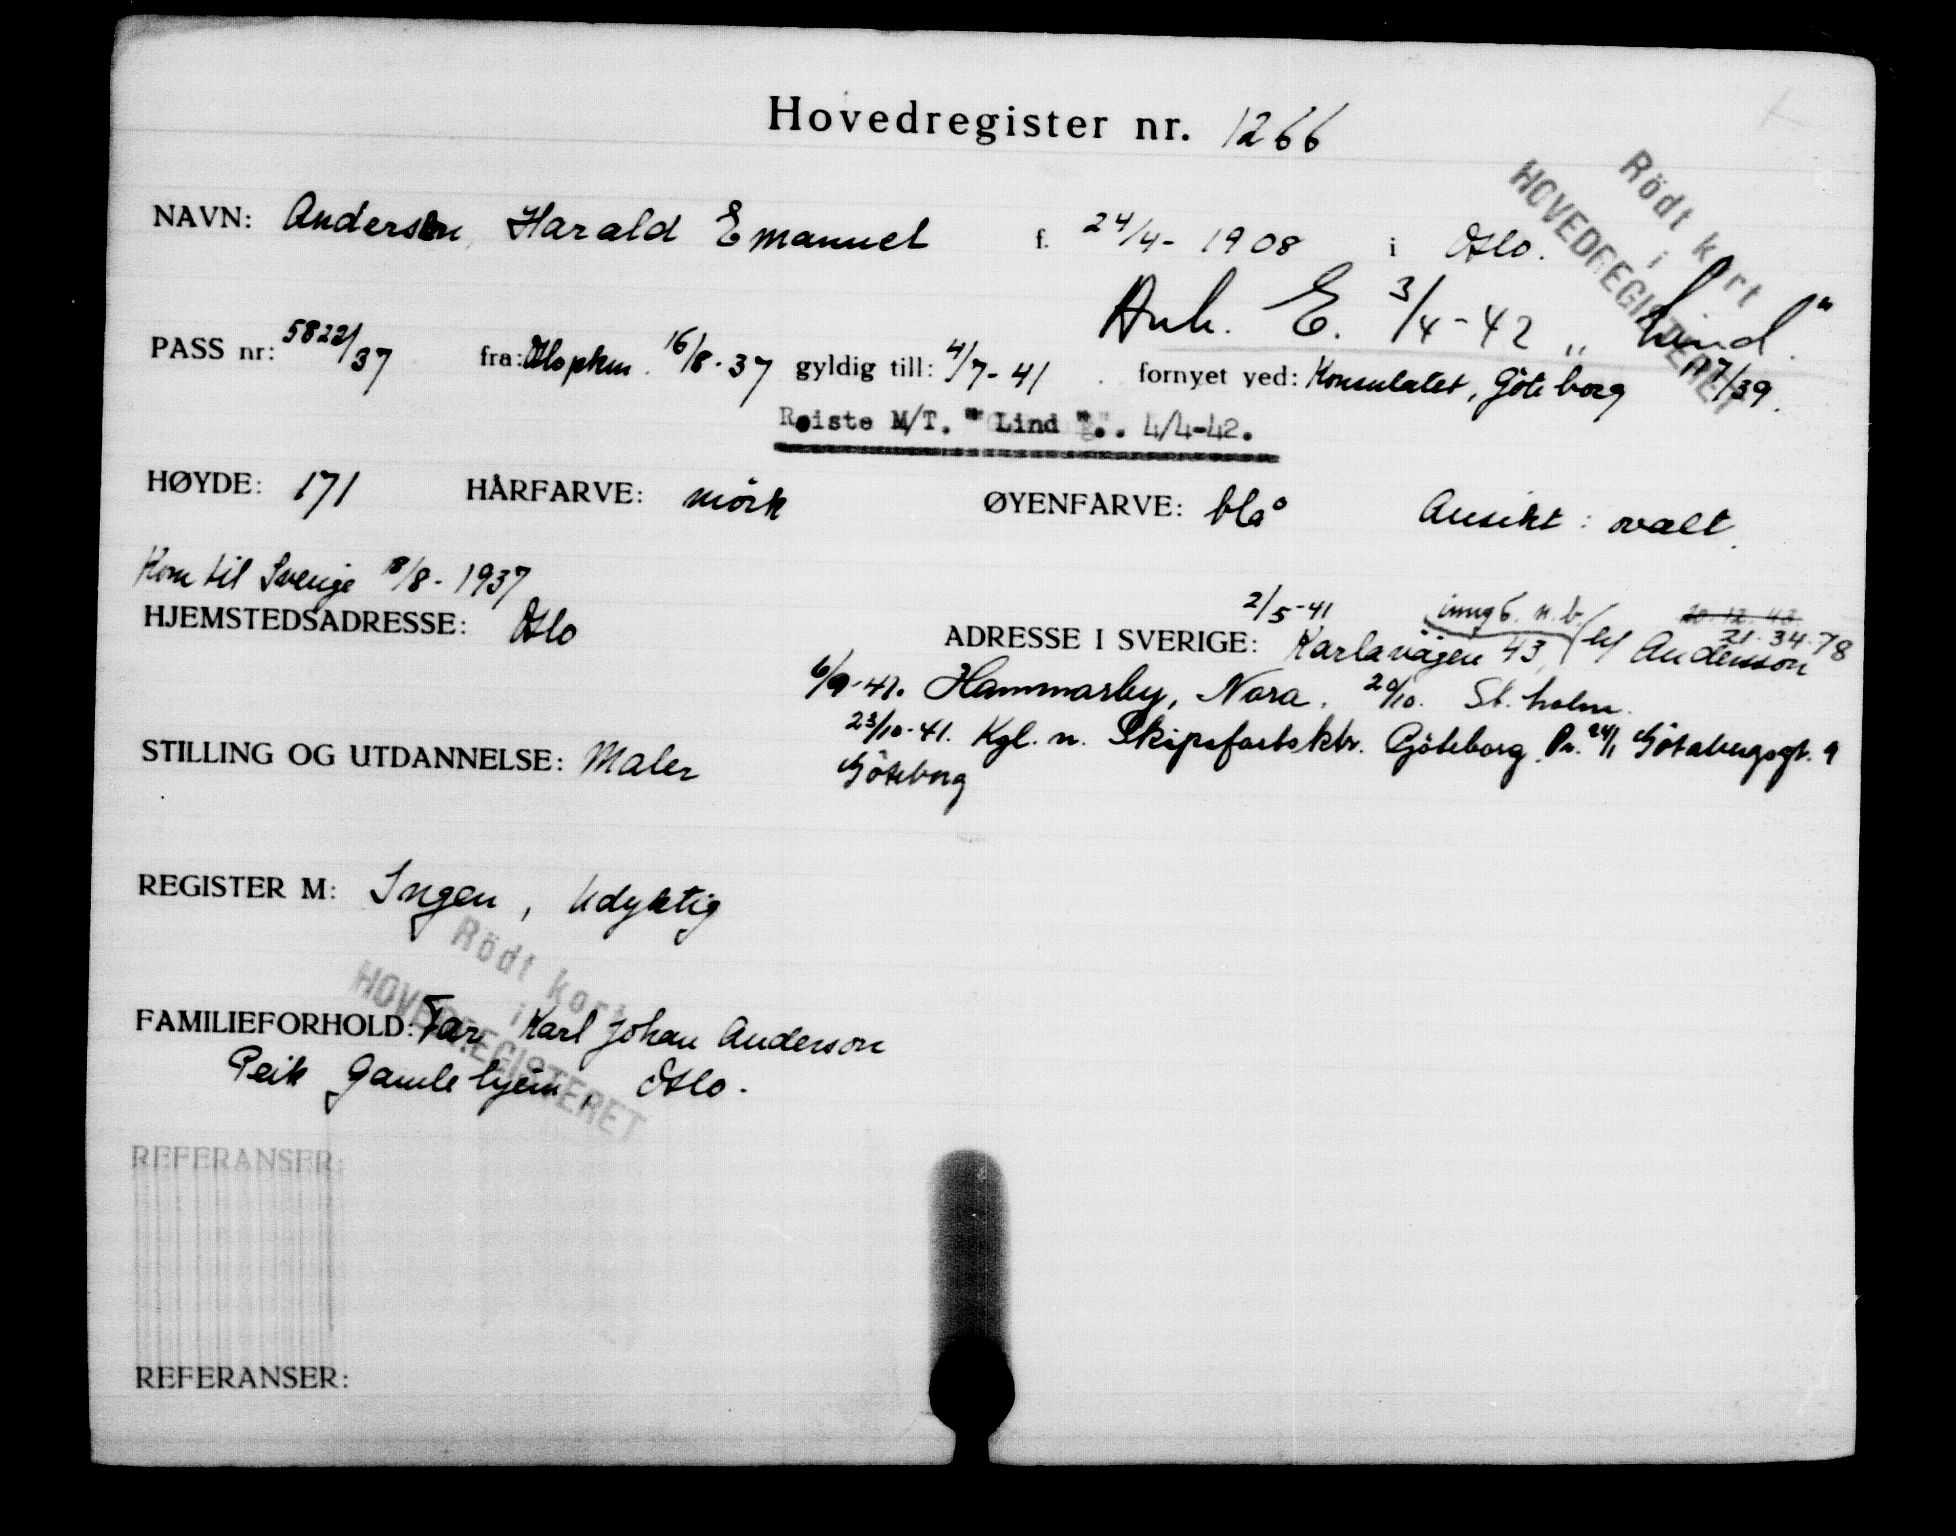 Hovedregister nr. 1266
Rödt kort
i
HOVEDREGISTERET
NAVN: Andersen, Harald Emanuel f. 24/4- 1908 i Oslo.
Ank. E. 3/4-42 „Lind."
PASS nr: 5822/37 fra: Oslo pkm. 16/8-37 gyldig till: 4/7-41 fornyet ved: Konsulatet, Göteborg 17/39.
Reiste M/T. "Lind". 4/4-42.
HØYDE: 171 HÅRFARVE: mörk ØYENFARVE: blå Ansikt: ovalt.
Kom til Sverige 18/8-1937
HJEMSTEDSADRESSE: Oslo
ADRESSE I SVERIGE: 2/5-41 Karlavägen 43, (inng 6. n. b.) Andersson
20.12.43
21.34.78
6/9-41. Hammarby, Nora. 20/10. St.holm.
23/10-41. Kgl. n. Skipsfartsktr. Göteborg. Pr. 24/1 Götabergsgt. 9
Göteborg
STILLING OG UTDANNELSE: Maler
REGISTER M: Ingen, Udyktig
Rödt kort
i
HOVEDREGISTERET
FAMILIEFORHOLD: Far, Karl Johan Anderson
Peik Gamlehjem, Oslo.
REFERANSER:
REFERANSER: